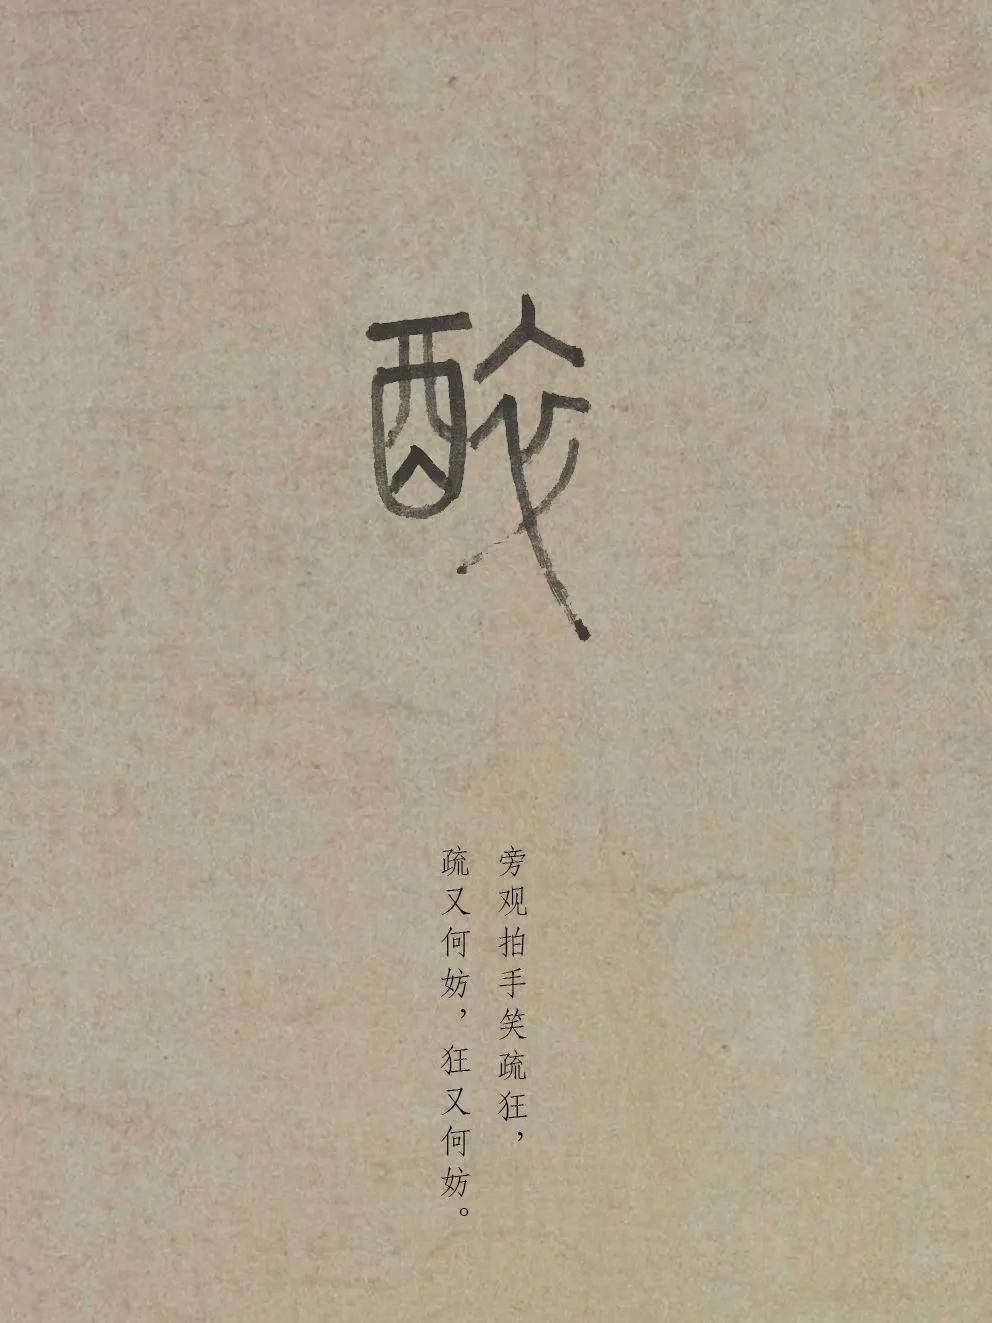 醉
旁观拍手笑疏狂，
疏又何妨，狂又何妨。